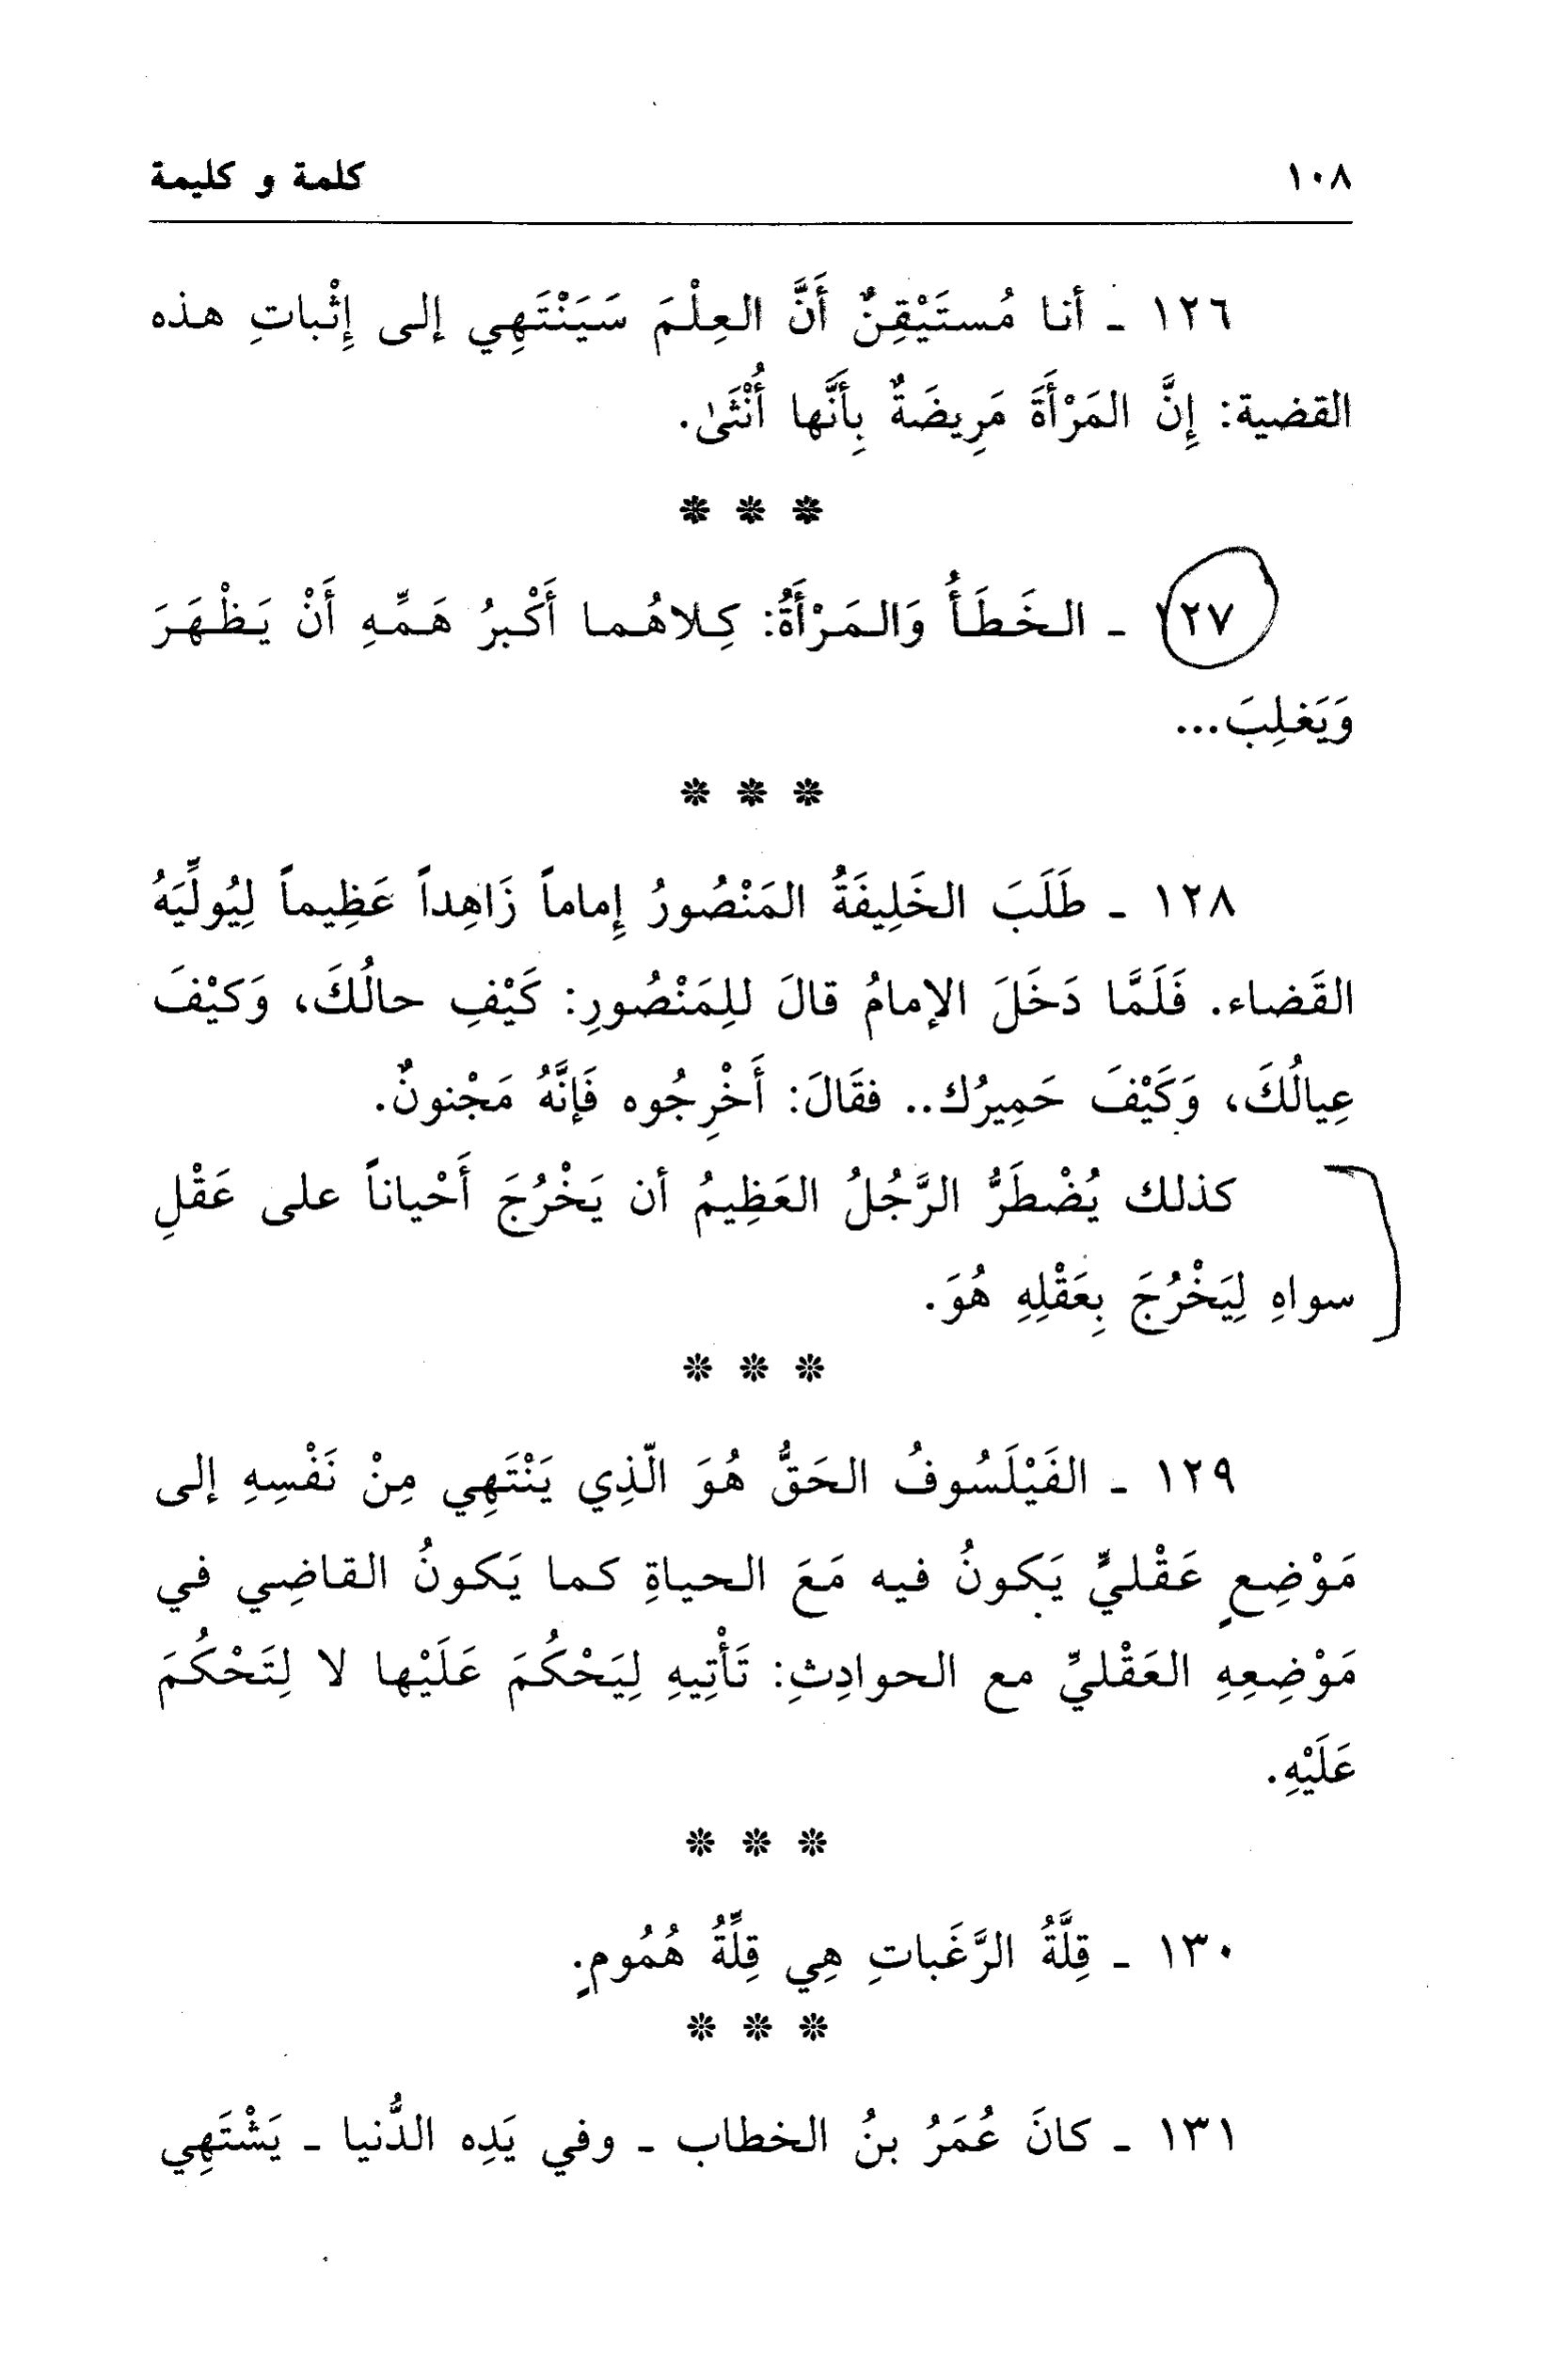 ١٠٨ كلمة و كليمة
١٢٦ ـ أنا مُستَيْقِنٌ أَنَّ العِلْمَ سَيَنْتَهِي إلى إِثْباتِ هذه
القضية: إِنَّ المَرْأَةَ مَرِيضَةٌ بِأَنَّها أُنْثَىٰ.
* * *
١٢٧ ـ الخَطَأُ وَالمَرْأَةُ: كِلاهُما أَكْبرُ هَمِّهِ أَنْ يَظْهَرَ
وَيَغلِبَ...
* * *
١٢٨ ـ طَلَبَ الخَلِيفَةُ المَنْصُورُ إِماماً زَاهِداً عَظِيماً لِيُولِّيَهُ
القَضاء. فَلَمَّا دَخَلَ الإمامُ قالَ للِمَنْصُورِ: كَيْفِ حالُكَ، وَكيْفَ
عِيالُكَ، وَكَيْفَ حَمِيرُك.. فقَالَ: أَخْرِجُوه فَإنَّهُ مَجْنونٌ.
كذلك يُضْطَرُّ الرَّجُلُ العَظِيمُ أن يَخْرُجَ أَحْياناً على عَقْلِ
سواهِ لِيَخْرُجَ بِعَقْلِهِ هُوَ.
* * *
١٢٩ ـ الفَيْلَسُوفُ الحَقُّ هُوَ الّذِي يَنْتَهِي مِنْ نَفْسِهِ إلى
مَوْضِعٍ عَقْليٍّ يَكونُ فيه مَعَ الحياةِ كما يَكونُ القاضِي في
مَوْضِعِهِ العَقْليِّ مع الحوادِثِ: تَأْتِيهِ لِيَحْكُمَ عَلَيْها لا لِتَحْكُمَ
عَلَيْهِ.
* * *
١٣٠ ـ قِلَّةُ الرَّغَباتِ هِي قِلِّةُ هُمُومٍ.
* * *
١٣١ ـ كانَ عُمَرُ بنُ الخطاب ـ وفي يَدِه الدُّنيا ـ يَشْتَهِي